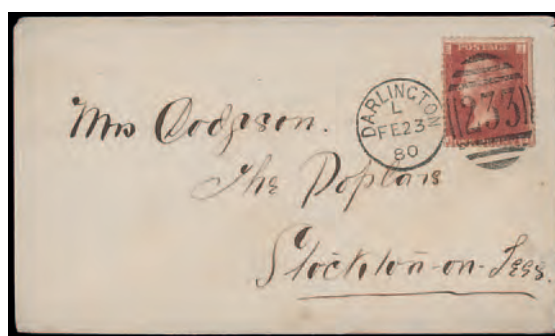 POSTAGE
DARLINGTON
L
FE 23
80
233
Mrs Dodgson.
The Poplars
Stockton-on-Tees.